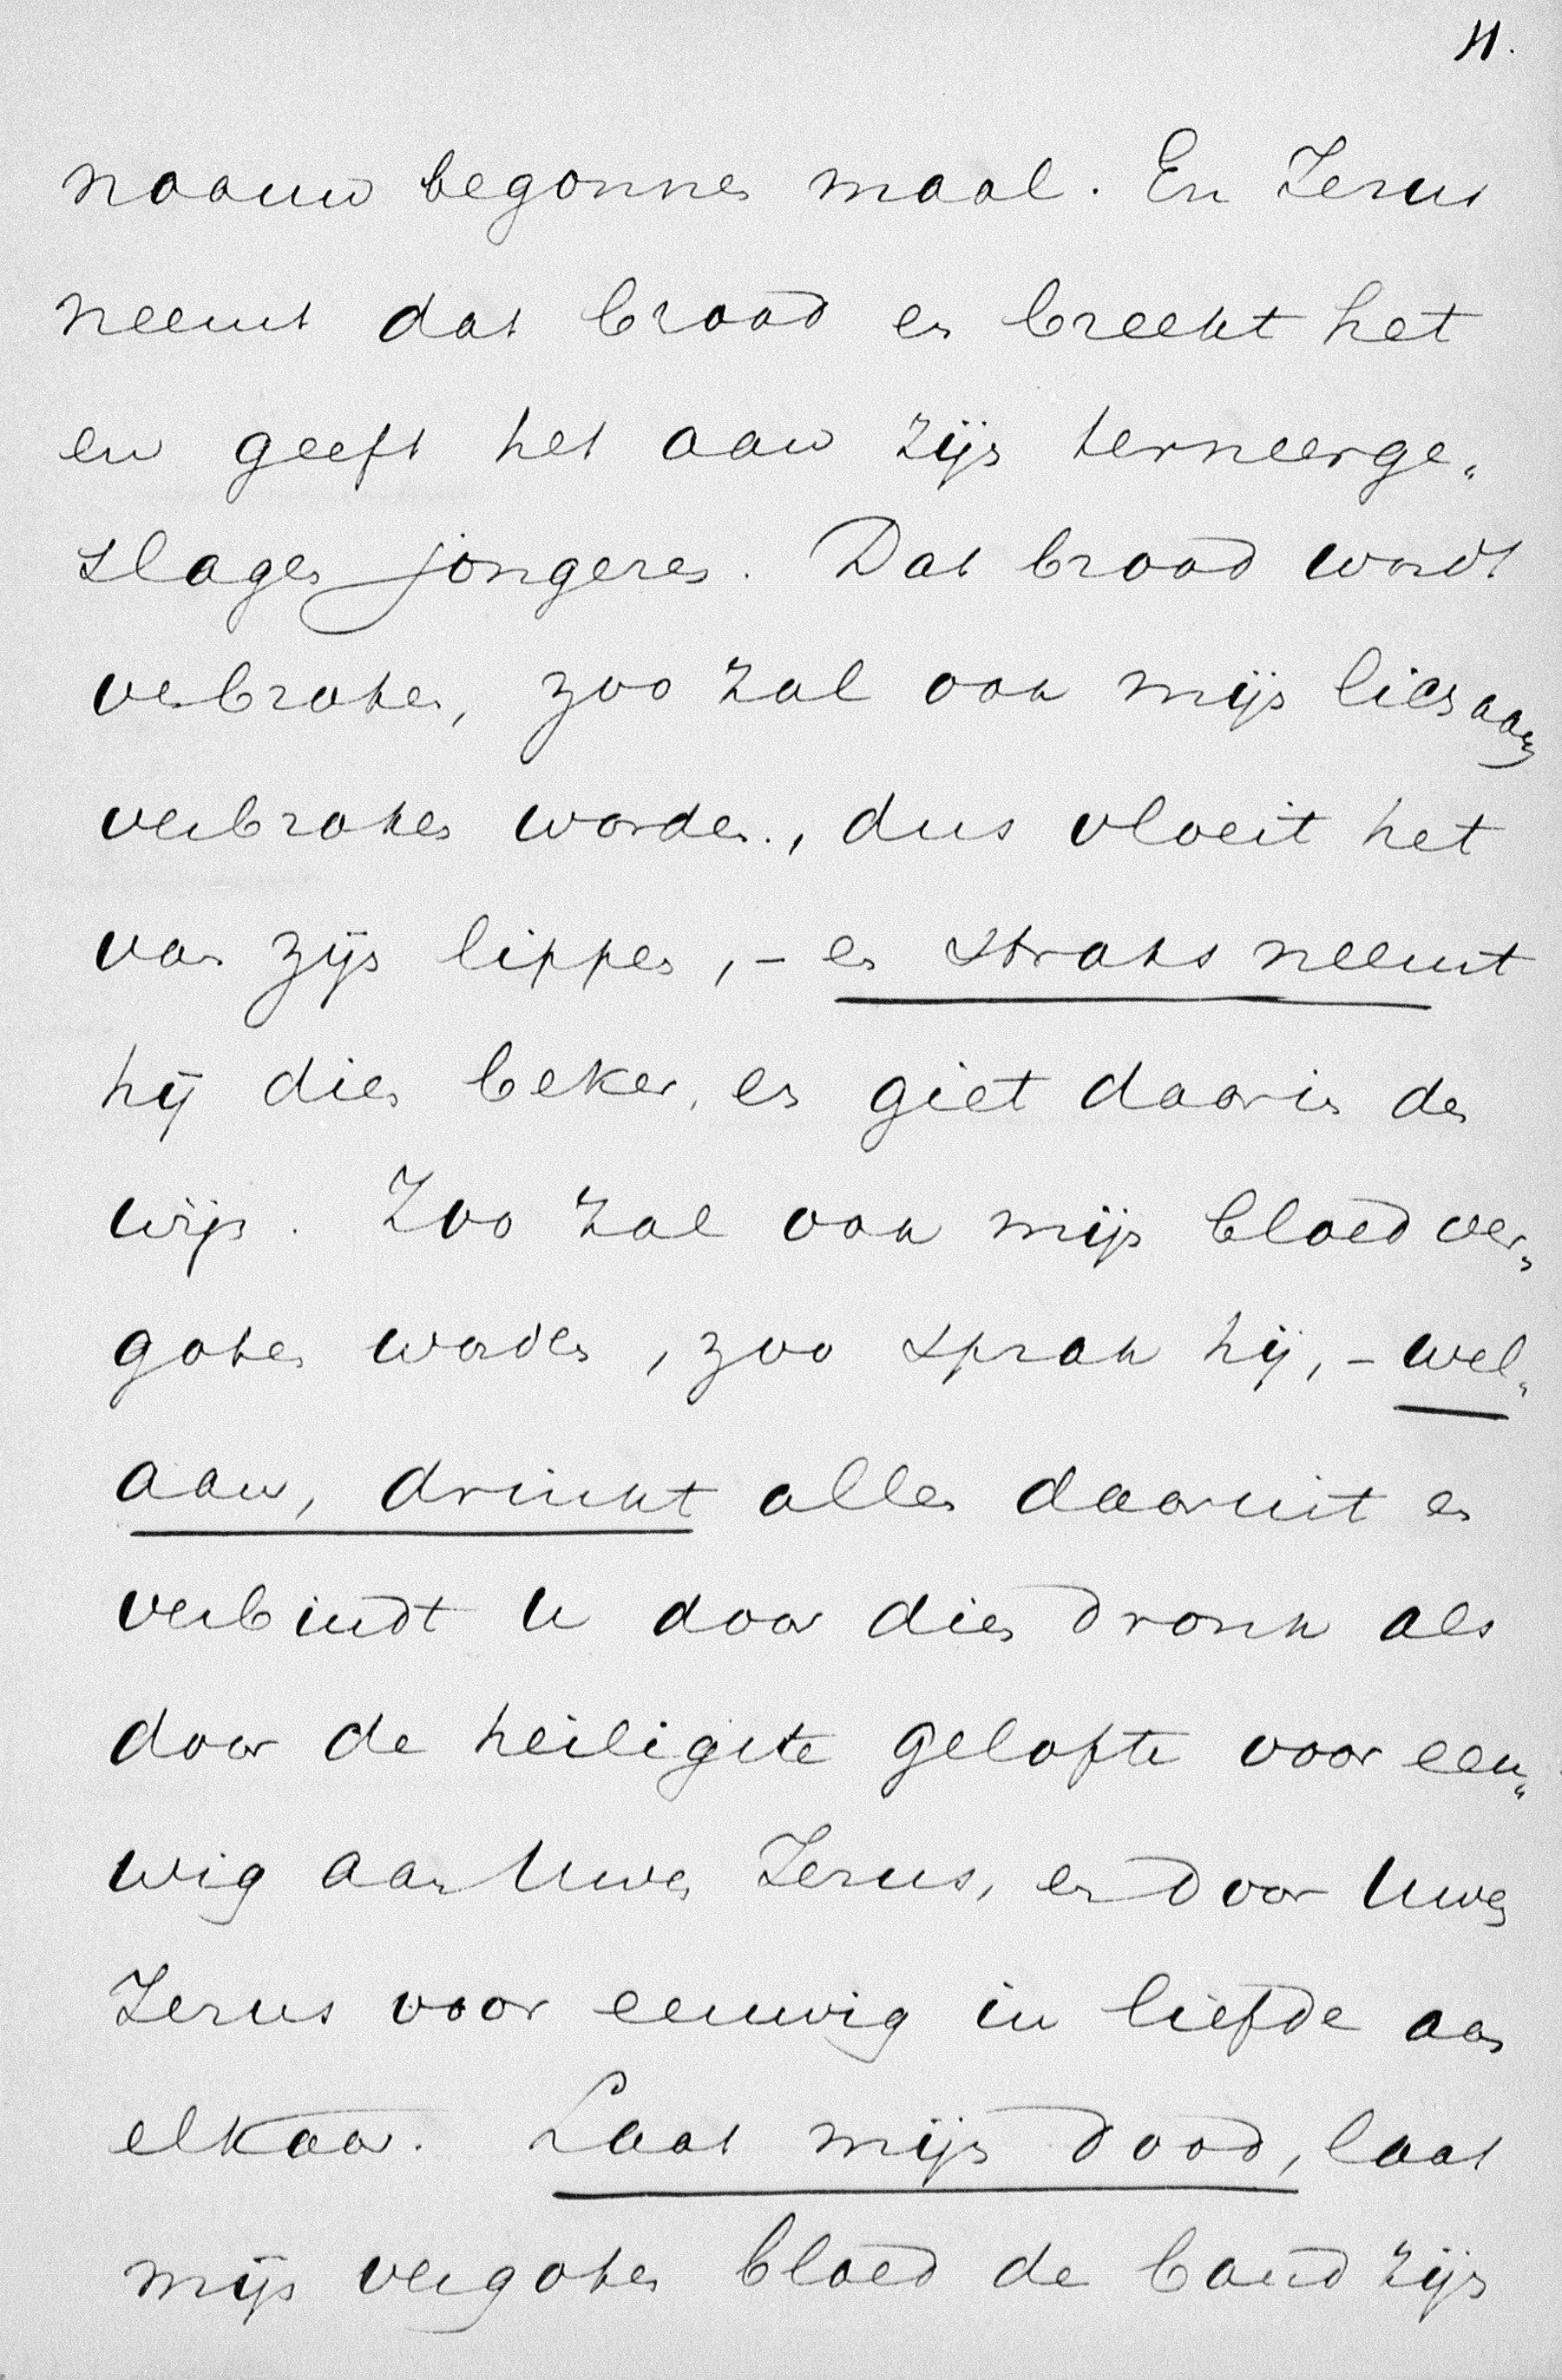 11.
naauw begonnen maal. En Jezus
neemt dat brood en breekt het
en geeft het aan zijn terneerge„
slagen jongeren. Dat brood wordt
verbroken, zoo zal ook mijn lichaam
verbroken worden., dus vloeit het
van zijn lippen, – en straks neemt
hij dien beker, en giet daarin den
wijn. Zoo zal ook mijn bloed ver„
goten worden, zoo sprak hij, – wel„
aan, drinkt allen daaruit en
verbindt U door dien dronk als
door de heiligste gelofte voor eeu„
wig aan Uwen Jezus, en door Uwen
Jezus voor eeuwig in liefde aan
elkaar. Laat mijn dood, laat
mijn vergoten bloed de band zijn